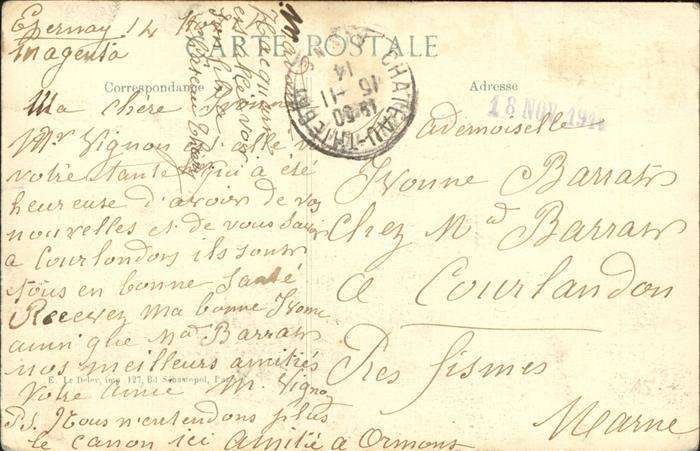 Epernay 14
Magenta
CARTE POSTALE
Correspondance
Adresse
CHATEAU-THIERRY
16-11
14
18 NOV 1914
Ma chère Yvonne
Mr Vignon
votre tante qui a été
heureuse d'avoir de vos
nouvelles et de vous savoir
a Courlandon ils sont
tous en bonne santé
Recevez ma bonne Yvonne
ainsi que Md Barrat
nos meilleurs amitiés
Votre amie M. Vignon
P.S. Nous n'entendons plus
le canon ici amitié a Ormont
E. Le Deley, imp. 127, Bd Sébastopol, Paris
Mademoiselle
Yvonne Barrat
Chez Md Barrat
a Courlandon
Pres fismes
Marne